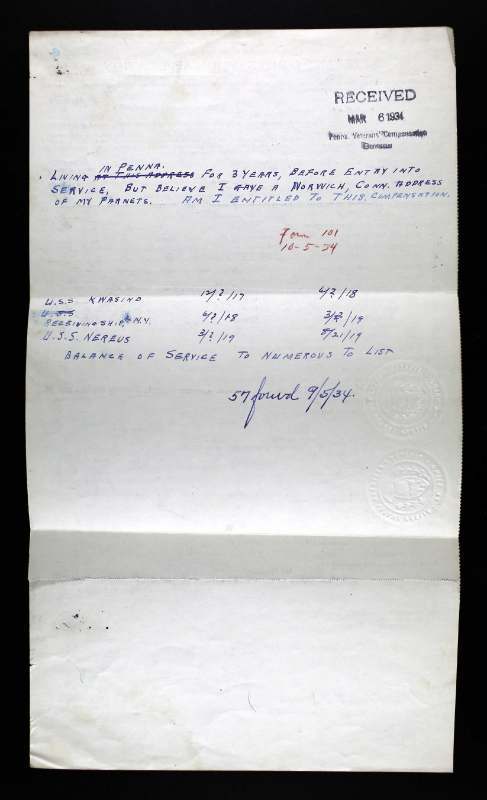 RECEIVED
MAR 6 1934
Penna. Veterans' Compensation
Bureau
IN PENNA.
LIVING AT THIS ADDRESS FOR 3 YEARS, BEFORE ENTRY INTO
SERVICE, BUT BELIEVE I GAVE A NORWICH, CONN. ADDRESS
OF MY PARNETS. AM I ENTITLED TO THIS COMPENSATION.
Form 101
10-5-34
U.S.S KWASIND 12/?/17 4/?/18
U.S.S
RECEIVING SHIP, N.Y. 4/?/18 3/?/19
U.S.S. NEREUS 3/?/19 8/21/19
BALANCE OF SERVICE TO NUMEROUS TO LIST
57 found 9/5/34.